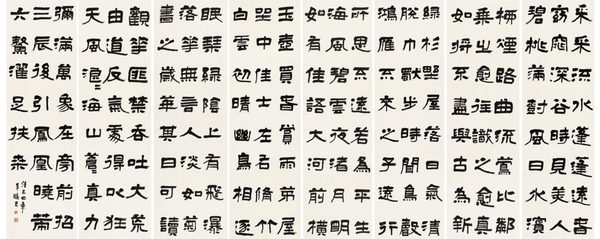 采采流水蓬蓬遠春
窈窕深谷時見美人
碧桃滿樹風日水濱
柳陰路曲流鶯比鄰
乘之愈往識之愈真
如將不盡與古為新
綠杉野屋落日氣清
脫巾獨步時聞鳥聲
鴻雁不來之子遠行
所思不遠若為平生
海風碧雲夜渚月明
如有佳語大河前橫
玉壺買春賞雨茆屋
坐中佳士左右脩竹
白雲初晴幽鳥相逐
眠琴綠陰上有飛瀑
落華無言人淡如菊
書之歲華其曰可讀
觀華匪禁吞吐大荒
由道反氣處得以狂
天風浪〻海山蒼〻真力
彌滿萬象在旁前招
三辰後引鳳凰曉策
六鰲濯足扶桑